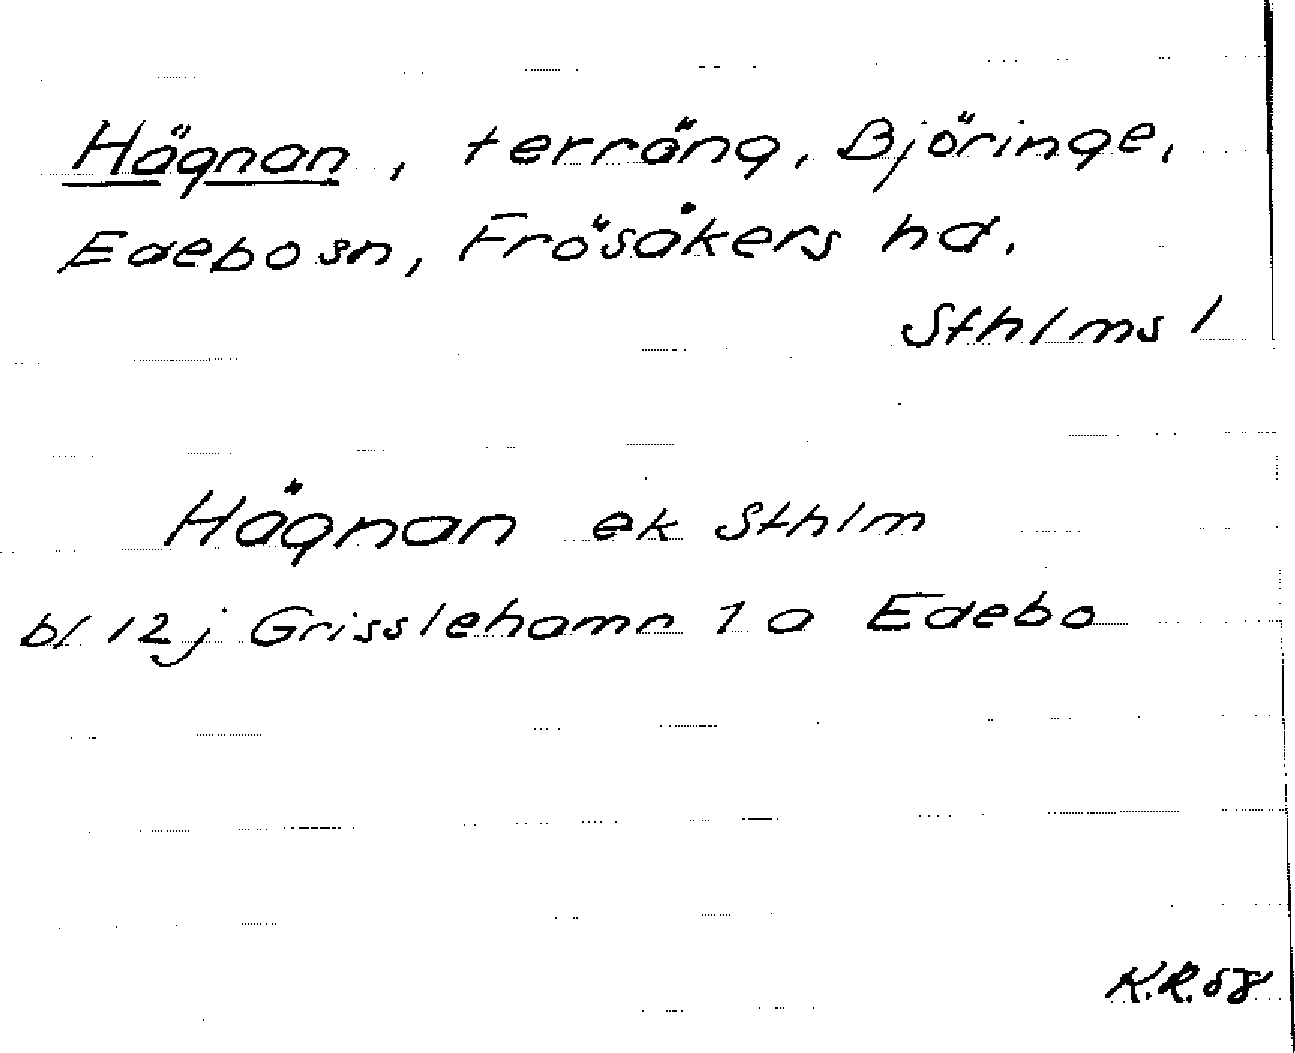 Hägnan, terräng, Björinge,
Edebo sn, Frösåkers hd.
Sthlms l
Hägnan ek Sthlm
bl 12j Grisslehamn 1 a Edebo
K.R. 58